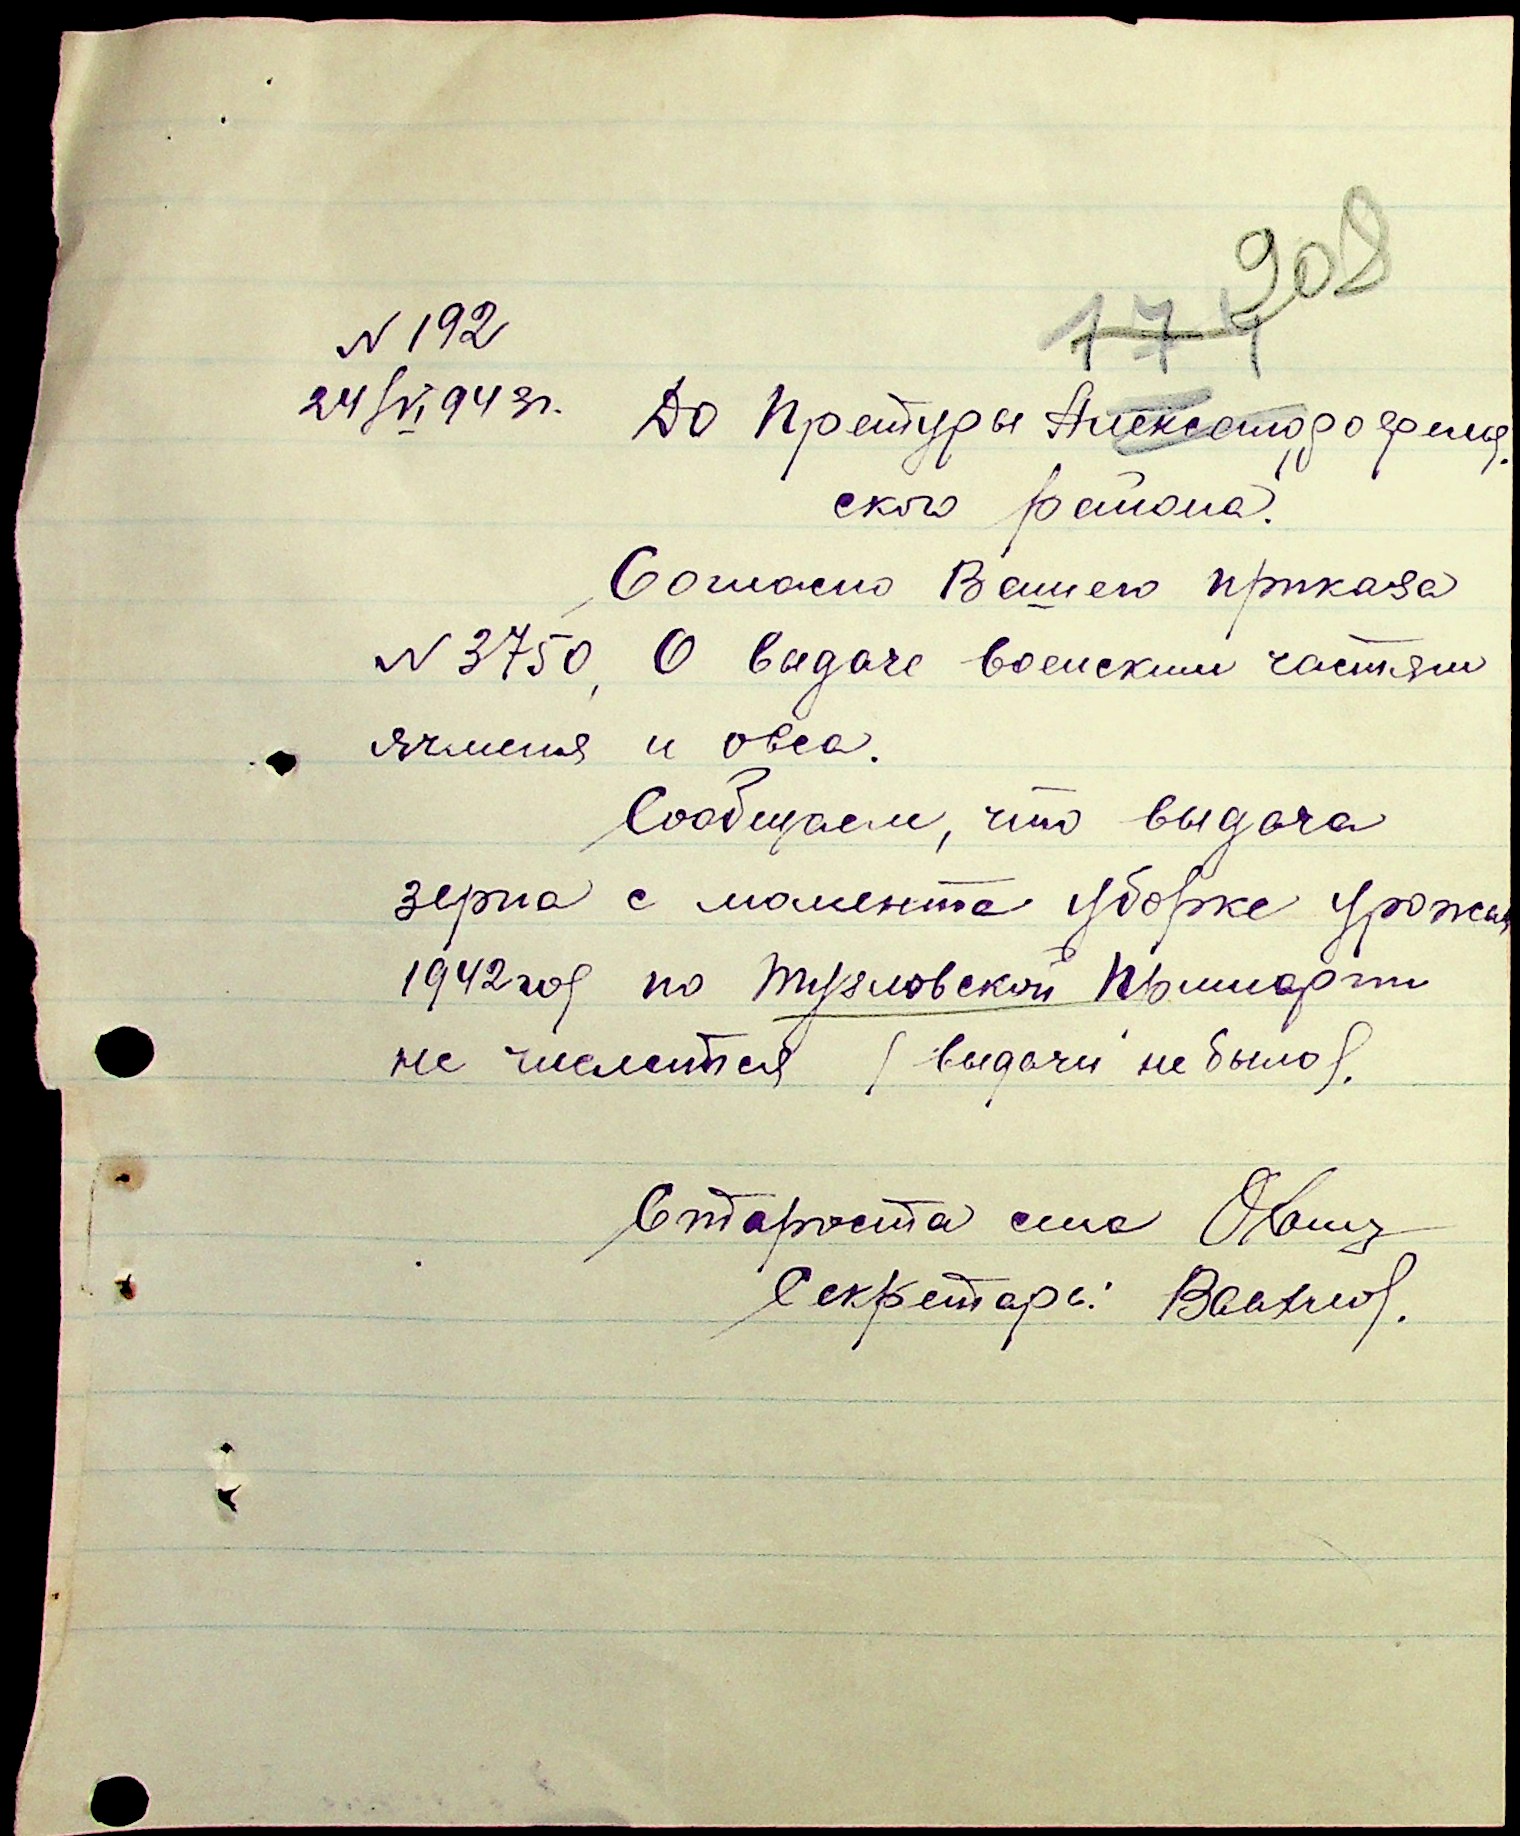 908
174
N 192
24/VI 943г. До Претуры Александрофель.
ского района.
Согласно Вашего приказа
N 3750, О выдаче военским частям
ячменя и овса.
Сообщаем, что выдача
зерна с момента уборке урожая
1942 год по Тузловской Примарти
не числится (выдачи не было).
Староста села
Секретарь: